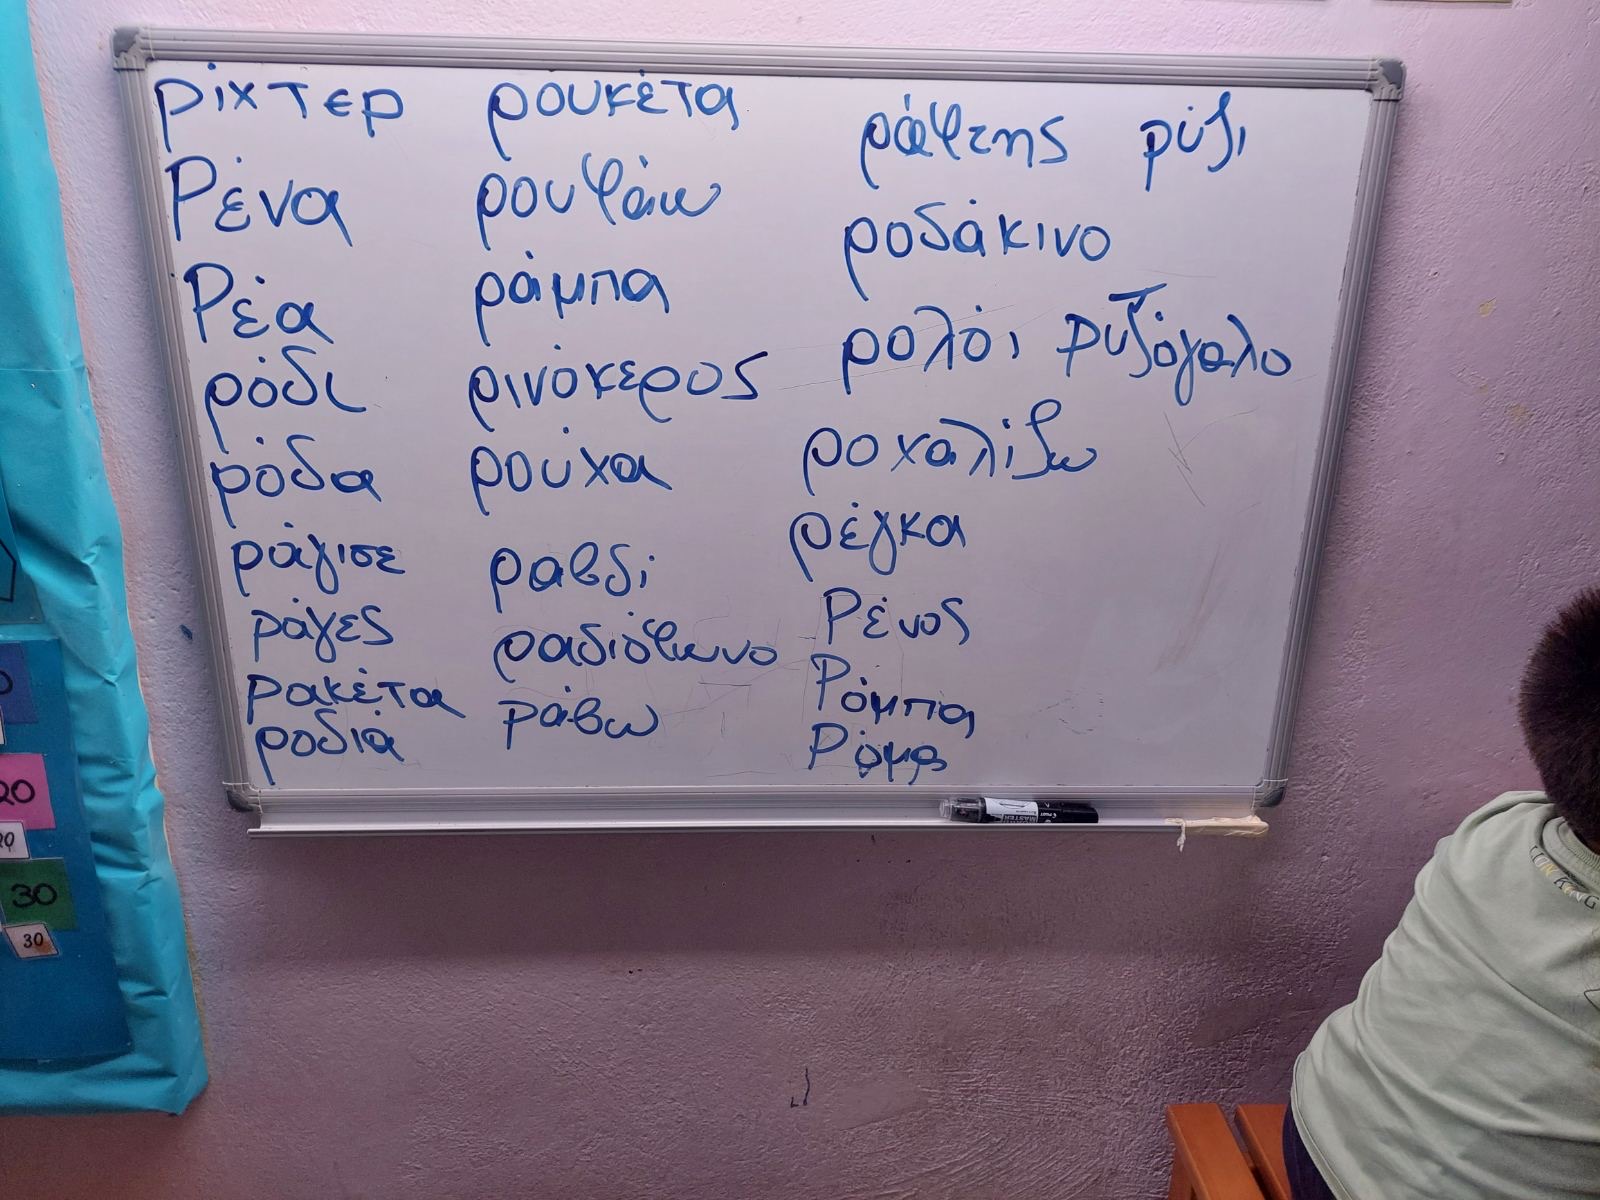 ρίχτερ
Ρένα
Ρέα
ρόδι
ρόδα
ράγισε
ράγες
ρακέτα
ροδιά
ρουκέτα
ρουφάω
ράμπα
ρινόκερος
ρούχα
ραβδί
ραδιόφωνο
ράβω
ράφτης ρύζι
ροδάκινο
ρολόι ρυζόγαλο
ροχαλίζω
ρέγκα
Ρένος
Ρόμπα
Ρόμα
20
30
30